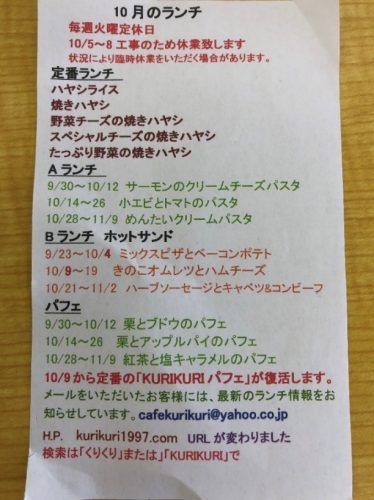 10月のランチ
毎週火曜定休日
10/5～8工事のため休業致します
状況により臨時休業をいただく場合があります。
定番ランチ
ハヤシライス
焼きハヤシ
野菜チーズの焼きハヤシ
スペシャルチーズの焼きハヤシ
たっぷり野菜の焼きハヤシ
Aランチ
9/30～10/12 サーモンのクリームチーズパスタ
10/14～26 小エビとトマトのパスタ
10/28～11/9 めんたいクリームパスタ
Bランチ ホットサンド
9/23～10/4 ミックスピザとベーコンポテト
10/9～19 きのこオムレツとハムチーズ
10/21～11/2 ハーブソーセージとキャベツ&コンビーフ
パフェ
9/30～10/12 栗とブドウのパフェ
10/14～26 栗とアップルパイのパフェ
10/28～11/9 紅茶と塩キャラメルのパフェ
10/9から定番の「KURIKURIパフェ」が復活します。
メールをいただいたお客様には、最新のランチ情報をお
知らせしています。cafekurikuri@yahoo.co.jp
H.P. kurikuri1997.com URLが変わりました
検索は「くりくり」または「「KURIKURI」で